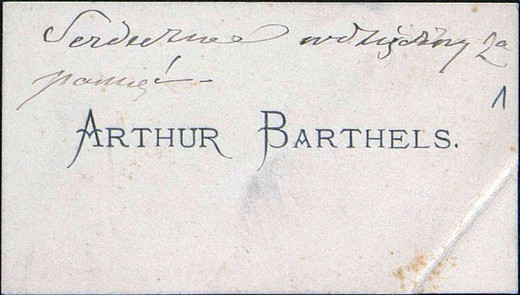 Serdecznie wdzięczny za
pamięć
1
ARTHUR BARTHELS.